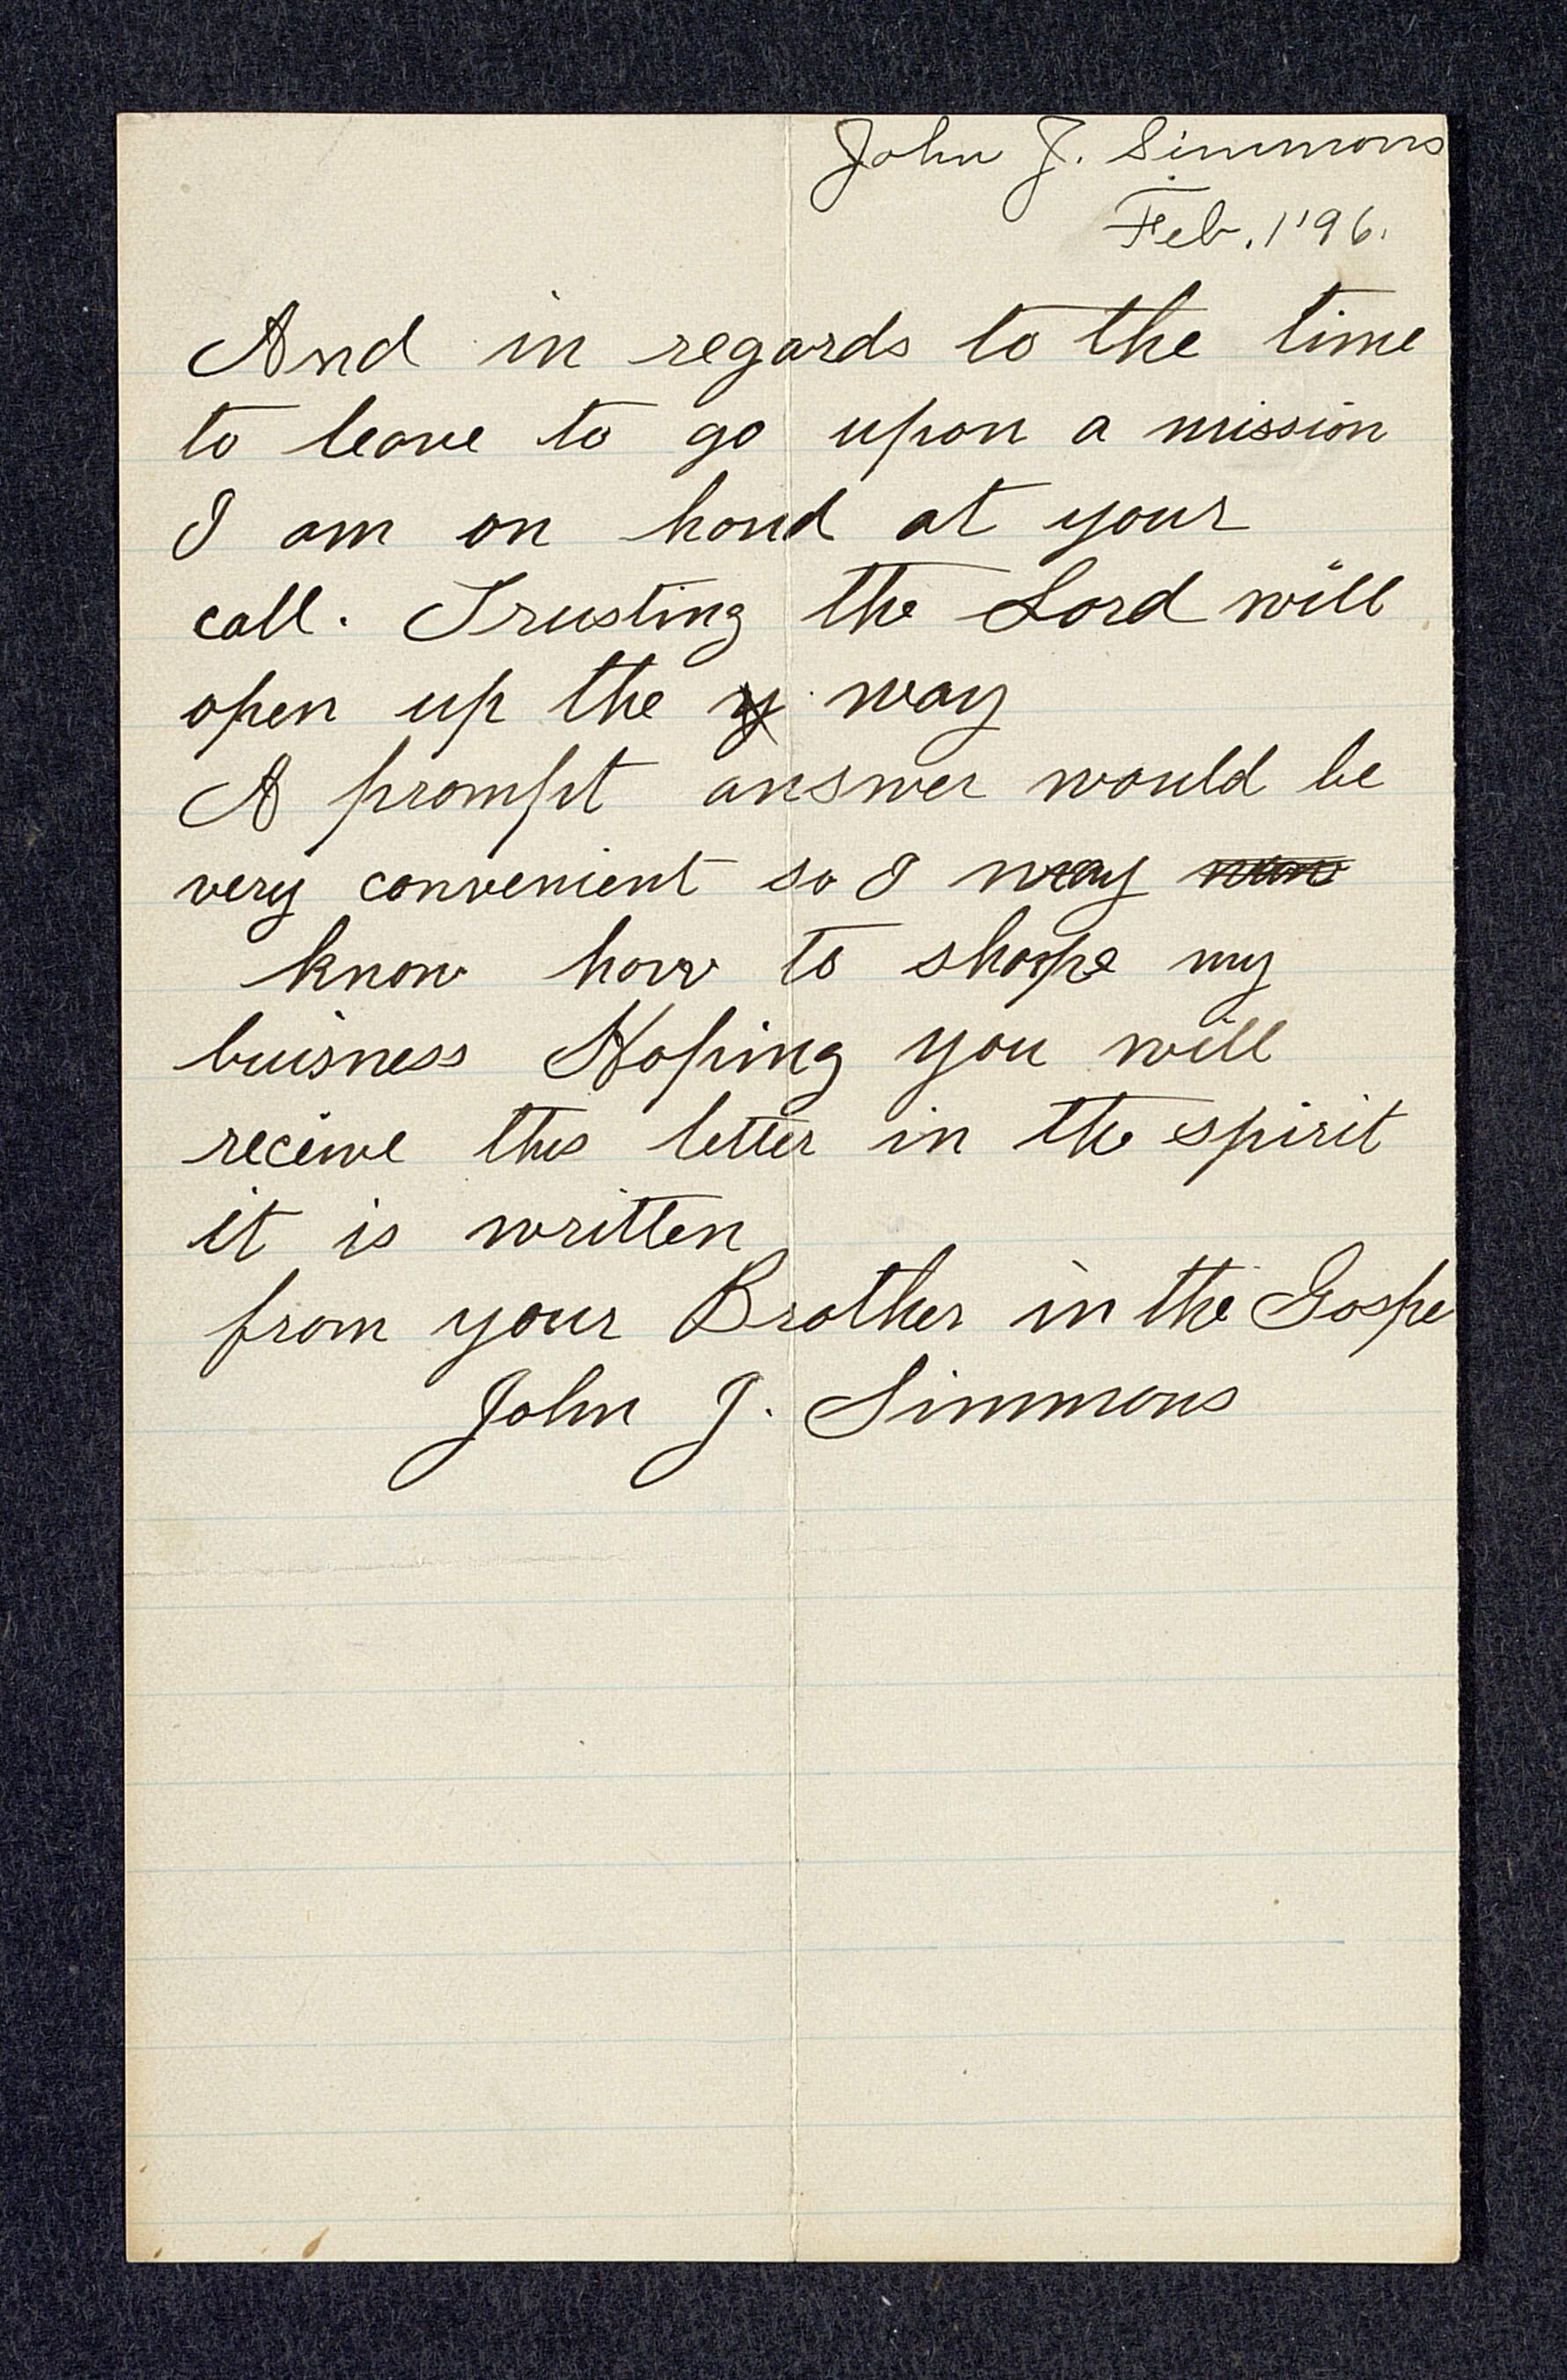 John J. Simmons
Feb. 1 '96.
And in regards to the time
to leave to go upon a mission
I am on hand at your
call. Trusting the Lord will
open up the y way
A prompt answer would be
very convenient so I may
know how to shape my
buisness Hoping you will
receive this letter in the spirit
it is written
from your Brother in the Gospe
John J. Simmons